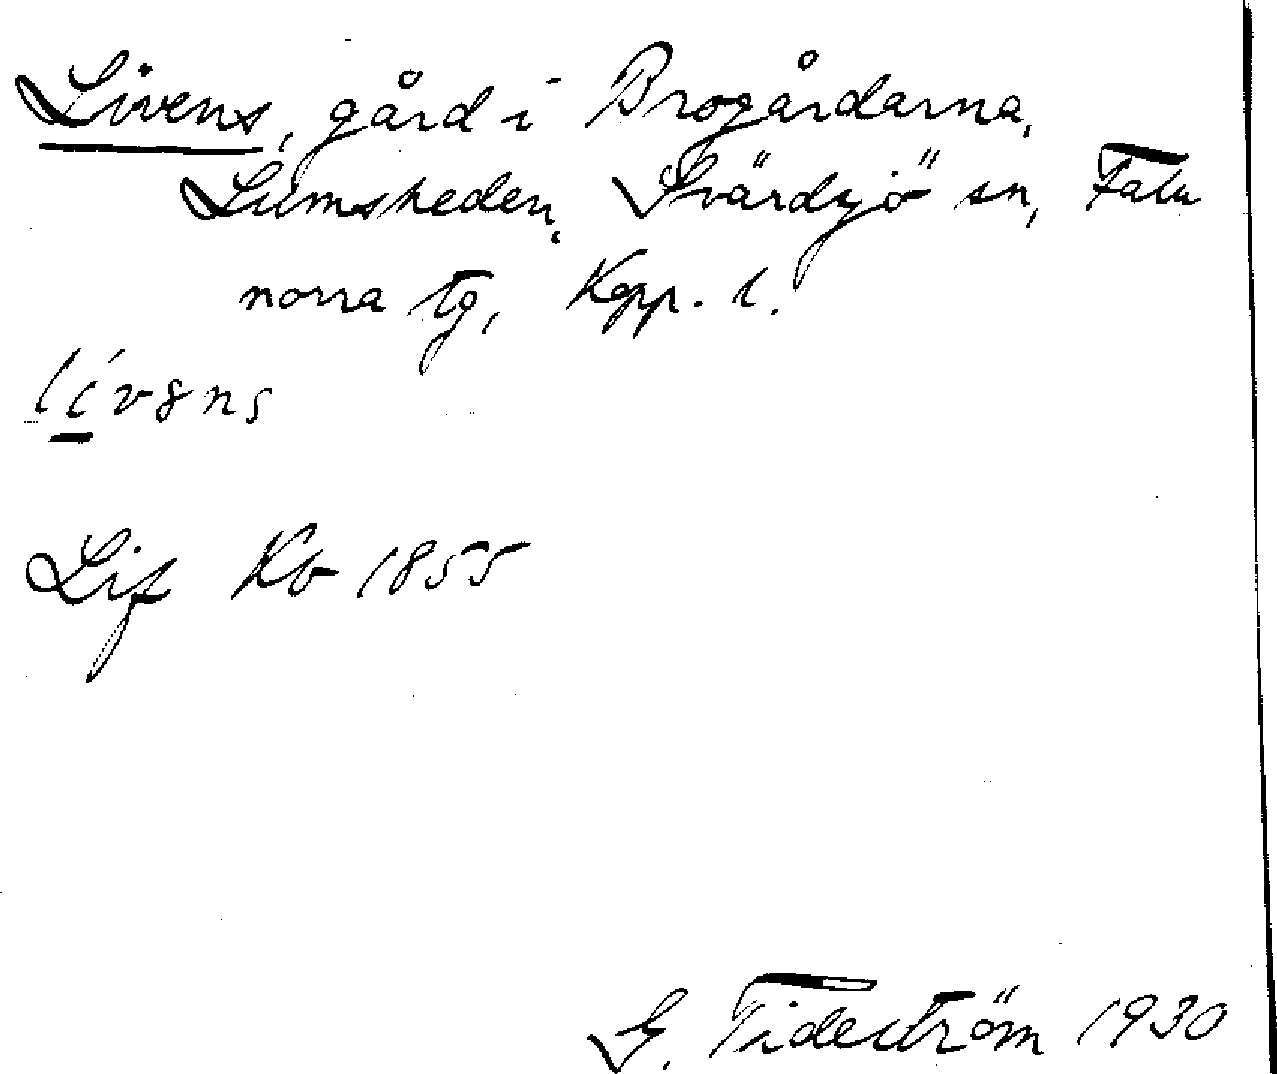 Livens, gård i Brogårdarna,
Lumsheden, Svärdsjö sn, Falu
norra tg, Kopp. l.
li´vəns
Lif Kb 1855
G. Tideström 1930